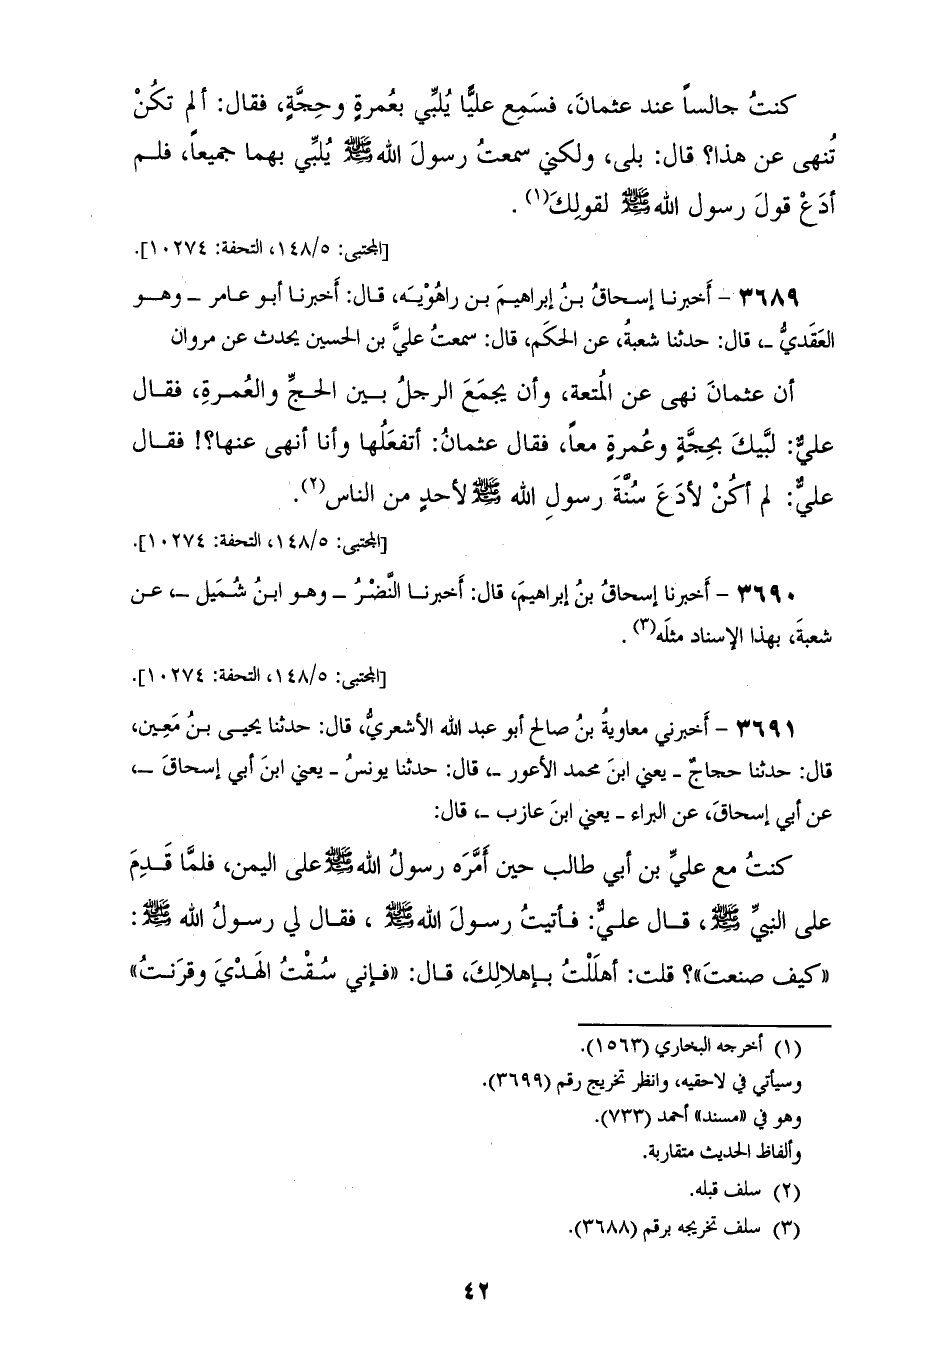 كنتُ جالساً عند عثمانَ، فسَمِع عليًّا يُلبِّي بعُمرةٍ وحِجَّةٍ، فقال: ألم تكُنْ
تُنهى عن هذا؟ قال: بلى، ولكني سمعتُ رسولَ اللهﷺ يُلبِّي بهما جميعاً، فلم
أدَعْ قولَ رسول اللهﷺ لقولِكَ(١) .
[المجتبى: ١٤٨/٥، التحفة: ١٠٢٧٤].
٣٦٨٩ - أَخبرنا إسحاقُ بنُ إبراهيمَ بن راهُوْيَه، قال: أَخبرنا أبو عامر ــ وهـو
العَقَديُّ ــ، قال: حدثنا شعبةُ، عن الحكَم، قال: سمعتُ عليَّ بن الحسين يحدث عن مروان
أن عثمانَ نهى عن المُتعة، وأن يجمَعَ الرجلُ بـين الحـجِّ والعُمـرةِ، فقـال
عليٌّ: لبَّيكَ بحِجَّةٍ وعُمرةٍ معاً، فقال عثمانُ: أتفعَلُها وأنا أنهى عنها؟! فقـال
عليٌّ: لم أكُنْ لأدَعَ سُنَّةَ رسولِ الله ﷺ لأحدٍ من الناس(٢).
[المجتبى: ١٤٨/٥، التحفة: ١٠٢٧٤].
٣٦٩٠ - أَخبرنا إسحاقُ بنُ إبراهيمَ، قال: أَخبرنـا النَّضْرُ ــ وهـو ابـنُ شُمَيل ــ، عـن
شعبةَ، بهذا الإسناد مثلَه(٣) .
[المجتبى: ١٤٨/٥، التحفة: ١٠٢٧٤].
٣٦٩١ - أَخبرني معاويةُ بنُ صالح أبو عبد الله الأشعريُّ، قال: حدثنا يحيـى بـنُ مَعِين،
قال: حدثنا حجاجٌ ـ يعني ابنَ محمد الأعور ــ، قال: حدثنا يونسُ ـ يعني ابنَ أبي إسحاقَ ــ،
عن أبي إسحاقَ، عن البراء ـ يعني ابنَ عازب ــ، قال:
كنتُ مع عليِّ بن أبي طالب حين أمَّرَه رسولُ اللهﷺعلى اليمن، فلمَّا قَـدِمَ
على النبيِّ ﷺ، قـال علـيٌّ: فـأتيتُ رسـولَ اللهﷺ ، فقـال لي رسـولُ الله ﷺ:
«كيف صنعتَ»؟ قلت: أهلَلْتُ بـإهلالِكَ، قـال: «فـإني سُـقْتُ الهَـدْيَ وقرَنـتُ»
(١) أخرجه البخاري (١٥٦٣).
وسيأتي في لاحقيه، وانظر تخريج رقم (٣٦٩٩).
وهو في «مسند» أحمد (٧٣٣).
وألفاظ الحديث متقاربة.
(٢) سلف قبله.
(٣) سلف تخريجه برقم (٣٦٨٨).
٤٢